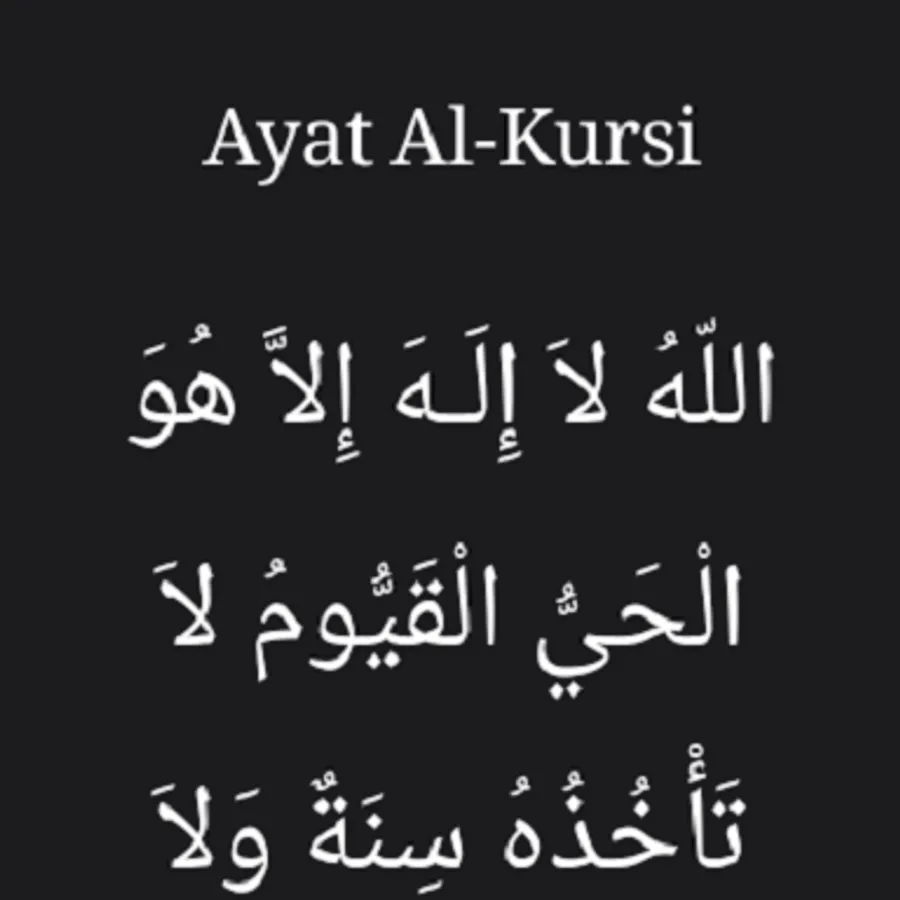 Ayat Al-Kursi
اللّهُ لاَ إِلَـهَ إِلاَّ هُوَ
الْحَيُّ الْقَيُّومُ لاَ
تَأْخُذُهُ سِنَةٌ وَلاَ